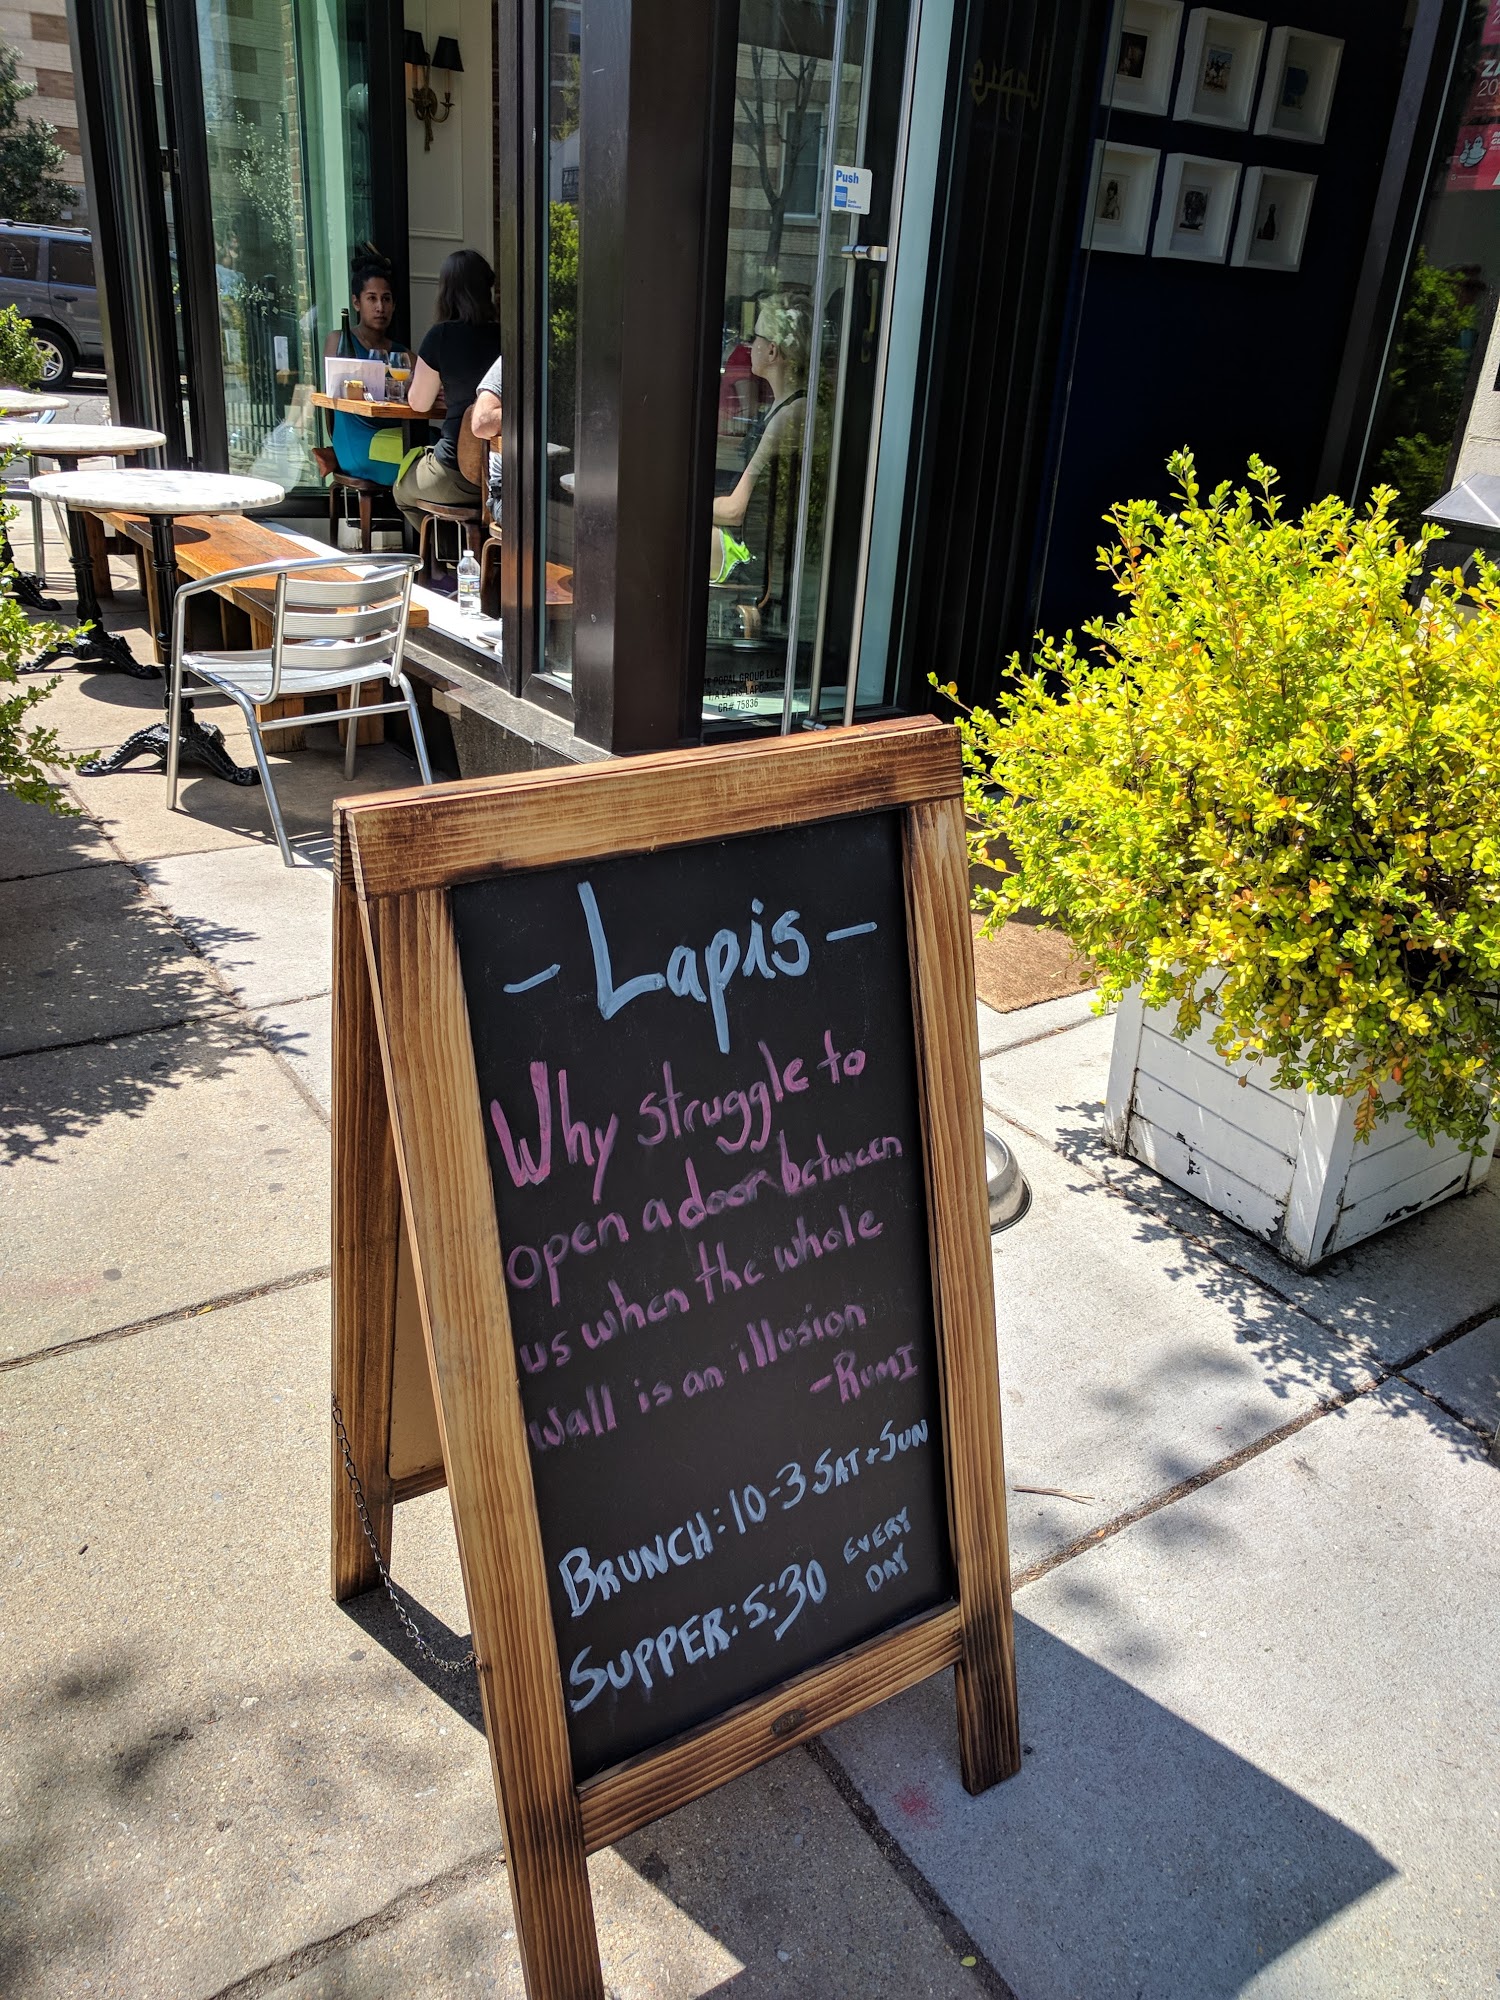 Push
ZA
20
POPAL GROUP, LLC
T/A LAPIS LAPIS
CR# 75836
- Lapis -
Why struggle to
open a door between
us when the whole
wall is an illusion
- RUMI
BRUNCH: 10-3 SAT + SUN
SUPPER: 5:30 EVERY
DAY